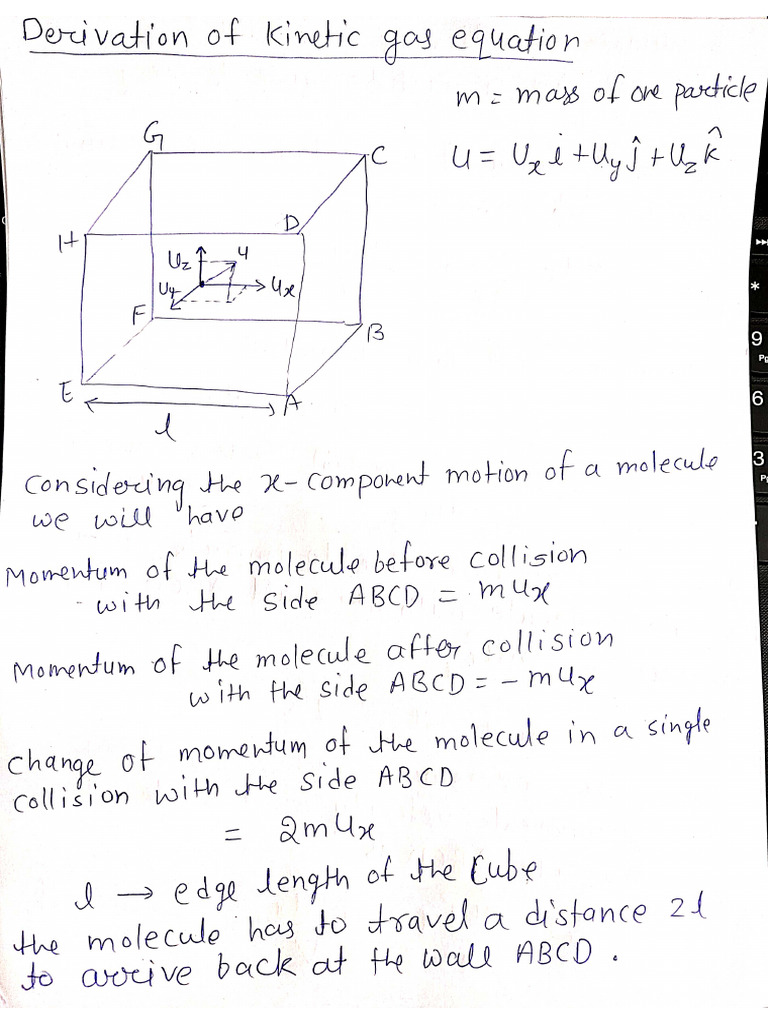 Derivation of Kinetic gas equation
m = mass of one particle
u = Uxi + Uyĵ + Uzk̂
G
C
H
D
Uz
u
Uy
Ux
F
B
E
A
l
Considering the x-component motion of a molecule
we will have
Momentum of the molecule before collision
with the side ABCD = mux
Momentum of the molecule after collision
with the side ABCD = -mux
Change of momentum of the molecule in a single
collision with the side ABCD
= 2mux
l → edge length of the Cube
the molecule has to travel a distance 2l
to arrive back at the wall ABCD.
*
9
6
3